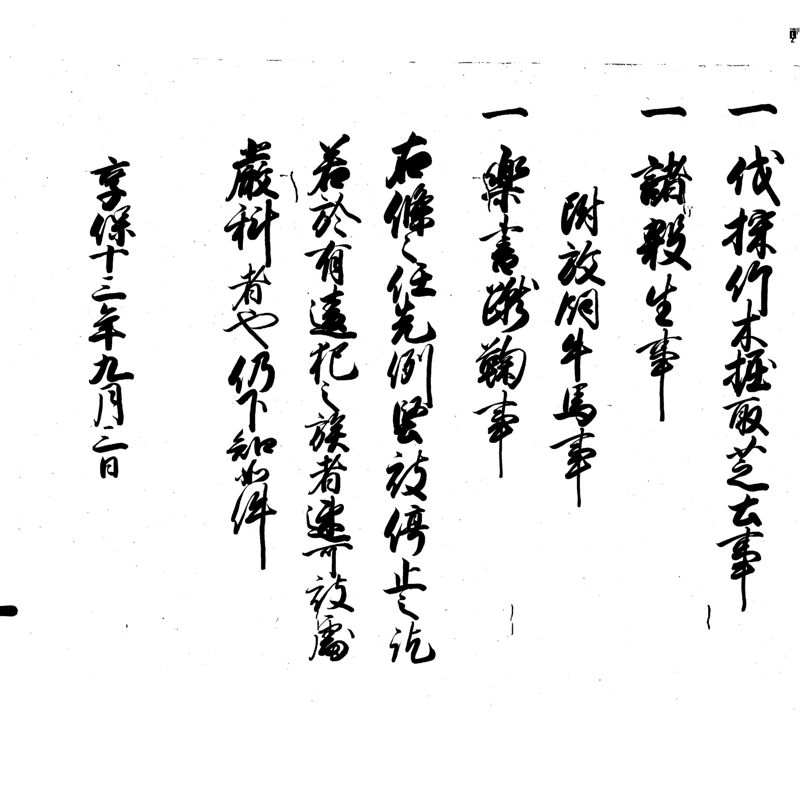 一伐採竹木掘取芝土事
一諸殺生事
附放飼牛馬事
一楽書蹴鞠事
右條々任先例堅被停止之訖
若於有違犯之族者速可被處
嚴科者也仍下知如件
享保十三年九月二日